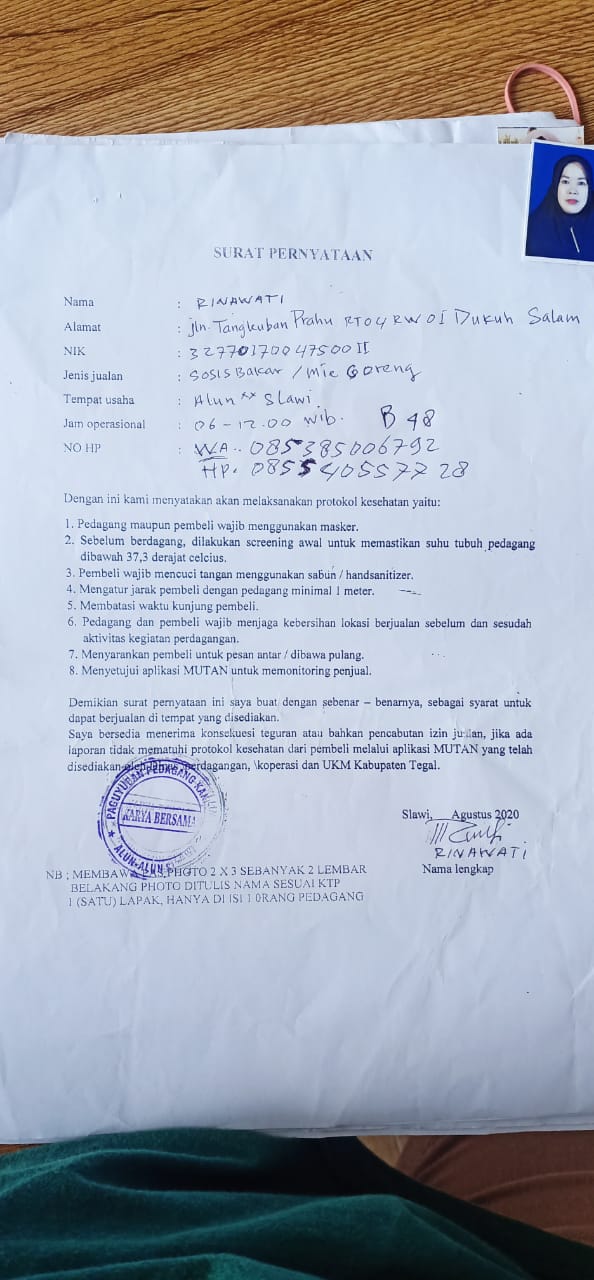 SURAT PERNYATAAN
Nama : RINAWATI
Alamat : jln. Tangkuban Prahu RT04 RW 01 Dukuh Salam
NIK :
Jenis jualan : SosisBakar / Mie Goreng
Tempat usaha : Alun xx Slawi
Jam operasional : 06 - 12.00 wib. B 48
NO HP : WA.. 085385006792
HP. 0855405577 28
Dengan ini kami menyatakan akan melaksanakan protokol kesehatan yaitu:
1. Pedagang maupun pembeli wajib menggunakan masker.
2. Sebelum berdagang, dilakukan screening awal untuk memastikan suhu tubuh pedagang
dibawah 37,3 derajat celcius.
3. Pembeli wajib mencuci tangan menggunakan sabun / handsanitizer.
4. Mengatur jarak pembeli dengan pedagang minimal 1 meter.
5. Membatasi waktu kunjung pembeli.
6. Pedagang dan pembeli wajib menjaga kebersihan lokasi berjualan sebelum dan sesudah
aktivitas kegiatan perdagangan.
7. Menyarankan pembeli untuk pesan antar / dibawa pulang.
8. Menyetujui aplikasi MUTAN untuk memonitoring penjual.
Demikian surat pernyataan ini saya buat dengan sebenar – benarnya, sebagai syarat untuk
dapat berjualan di tempat yang disediakan.
Saya bersedia menerima konsekuesi teguran atau bahkan pencabutan izin jualan, jika ada
laporan tidak mematuhi protokol kesehatan dari pembeli melalui aplikasi MUTAN yang telah
disediakan oleh Dinas perdagangan, \koperasi dan UKM Kabupaten Tegal.
PAGUYUBAN PEDAGANG
KARYA BERSAMA
ALUN-ALUN
Slawi, Agustus 2020
RINAWATI
Nama lengkap
NB ; MEMBAWA PAS PHOTO 2 X 3 SEBANYAK 2 LEMBAR
BELAKANG PHOTO DITULIS NAMA SESUAI KTP
1 (SATU) LAPAK, HANYA DI ISI 1 0RANG PEDAGANG